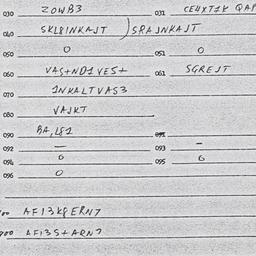 030 ZOWB3 031 CE4XT1K QAP
040 SKL8INKAJT / SRAJNKAJT
050 O 051 O
060 VAS+ND1VES+ 061 SGREJT
070 1NKALTVAS3
080 VAJKT
090 BA,L81
092 — 093 —
094 O 095 O
096 O
AF13K8ERN7
AF13S+ARN7